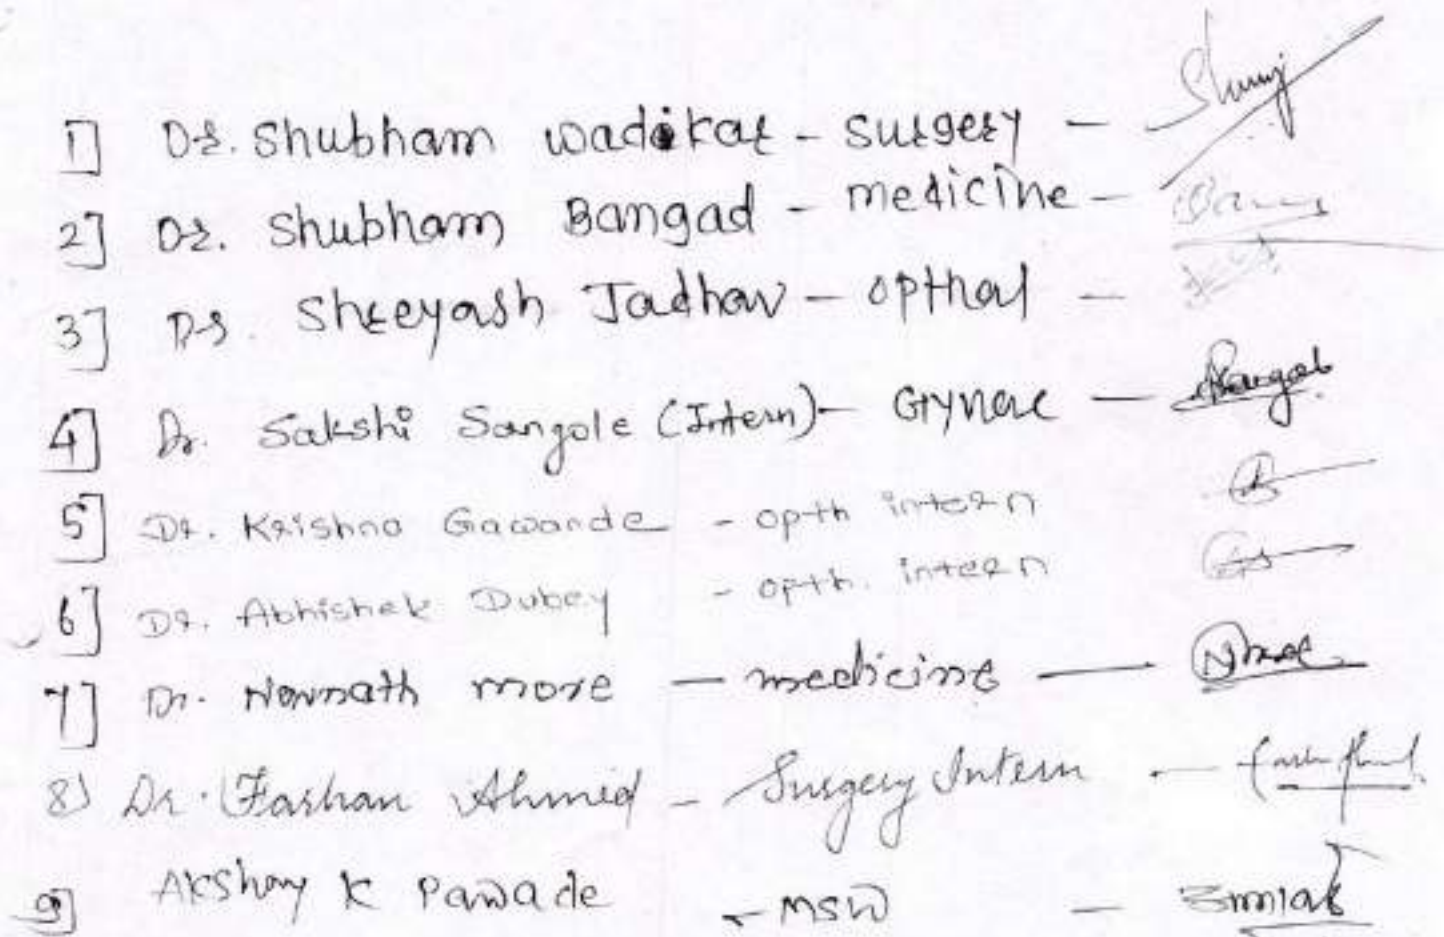 1] Dr. Shubham Wadikar - Surgery -
2] Dr. Shubham Bangad - medicine -
3] Dr. Shreeyash Jadhav - opthal -
4] Dr. Sakshi Sangole (Intern) - Gynae -
5] Dr. Krishna Gawande - opth intern
6] Dr. Abhishek Dubey - opth. intern
7] Dr. Navnath more - medicine -
8) Dr. Farhan Ahmed - Surgery Intern -
9] Akshay K Pawade - MSW -